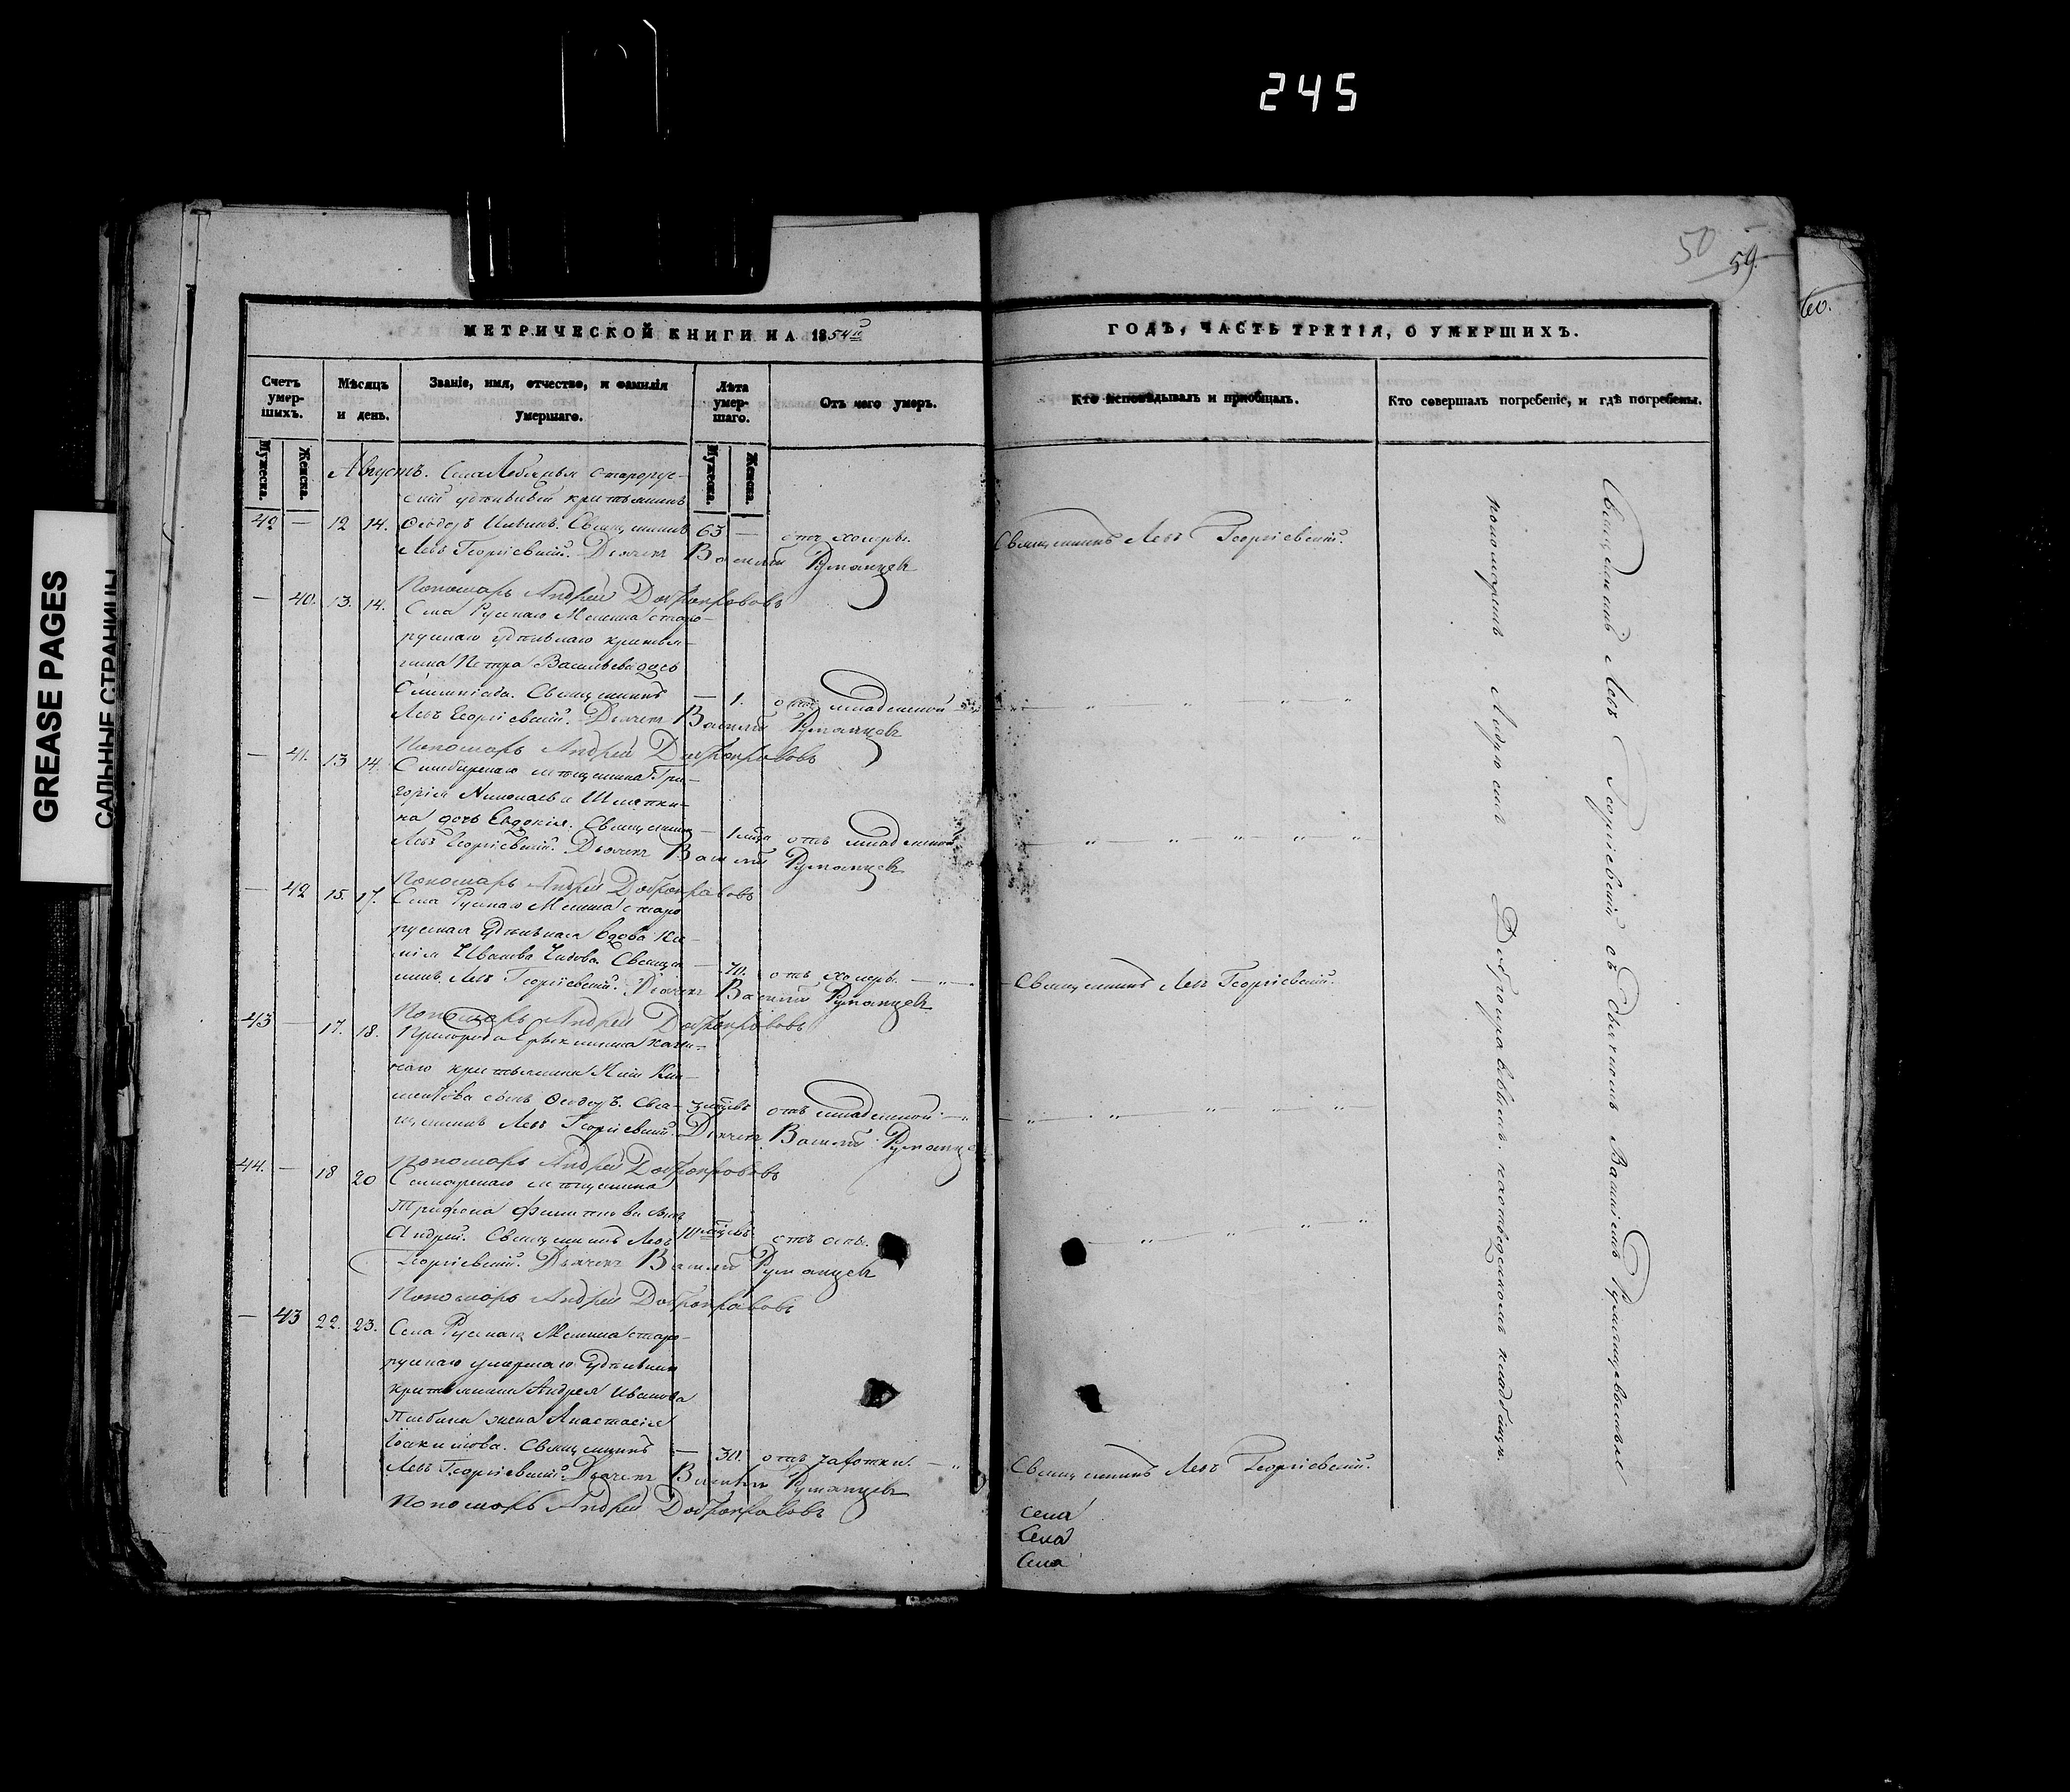 245
GREASE PAGES
САЛЬНЫЕ СТРАНИЦЫ
50
59
60.
МЕТРИЧЕСКОЙ КНИГИ НА 1854й
ГОДЪ, ЧАСТЬ ТРЕТІЯ, О УМЕРШИХЪ.
Счетъ умер-шихъ.
Мѣсяцъ и день.
Званіе, имя, отчество, и фамилія умершаго.
Лѣта умер-шаго.
Отъ чего умеръ.
Кто исповѣдывалъ и пріобщалъ.
Кто совершалъ погребеніе, и гдѣ погребены.
Мужеска.
Женска.
Мужеска.
Женска.
Августъ. Села
42 — 12 14. Ѳеодоръ Ильинъ. Священникъ 63 — отъ холеры. Священникъ Левъ Георгіевскій.
Левъ Георгіевскій. Дьячекъ Василій Румянцевъ
Пономарь Андрей Добронравовъ
— 40. 13. 14. Села Русскаго Мелекеса старо-
русскаго удѣльнаго крестья-
нина Петра Васильева дочь
Олимпіада. Священникъ — 1. отъ младенской
Левъ Георгіевскій. Дьячекъ Василій Румянцевъ
Пономарь Андрей Добронравовъ
— 41. 13 14. Симбирскаго мѣщанина Гри-
горія Николаева
на дочь Евдокія. Священникъ — 1 мѣсяца отъ младенской
Левъ Георгіевскій. Дьячекъ Василій Румянцевъ
Пономарь Андрей Добронравовъ
— 42 15. 17. Села Русскаго
русская удѣльная вдова
Иванова Священ- — 70. отъ холеры. Священникъ Левъ Георгіевскій.
никъ Левъ Георгіевскій. Дьячекъ Василій Румянцевъ
Пономарь Андрей Добронравовъ
43 — 17. 18. Пригорода
крестьянина
сынъ Ѳеодоръ. Свя- отъ младенской
щенникъ Левъ Георгіевскій. Дьячекъ Василій Румянцевъ
Пономарь Андрей Добронравовъ
44. — 18 20 Самарскаго мѣщанина
Трифона
Андрей. Священникъ Левъ 10 отъ оспы.
Георгіевскій. Дьячекъ Василій Румянцевъ
Пономарь Андрей Добронравовъ
— 43 22. 23. Села Русскаго
русскаго умершаго удѣльнаго
крестьянина Андрея Иванова
жена Анастасія
Іоакимова. Священникъ — 30. отъ чахотки. Священникъ Левъ Георгіевскій.
Левъ Георгіевскій. Дьячекъ Василій Румянцевъ
Пономарь Андрей Добронравовъ
Священникъ Левъ Георгіевскій съ Дьячкомъ Василіемъ Румянцевымъ и
пономаремъ Андреемъ Добронравовымъ. на отведенномъ кладбищѣ.
села
Села
Села